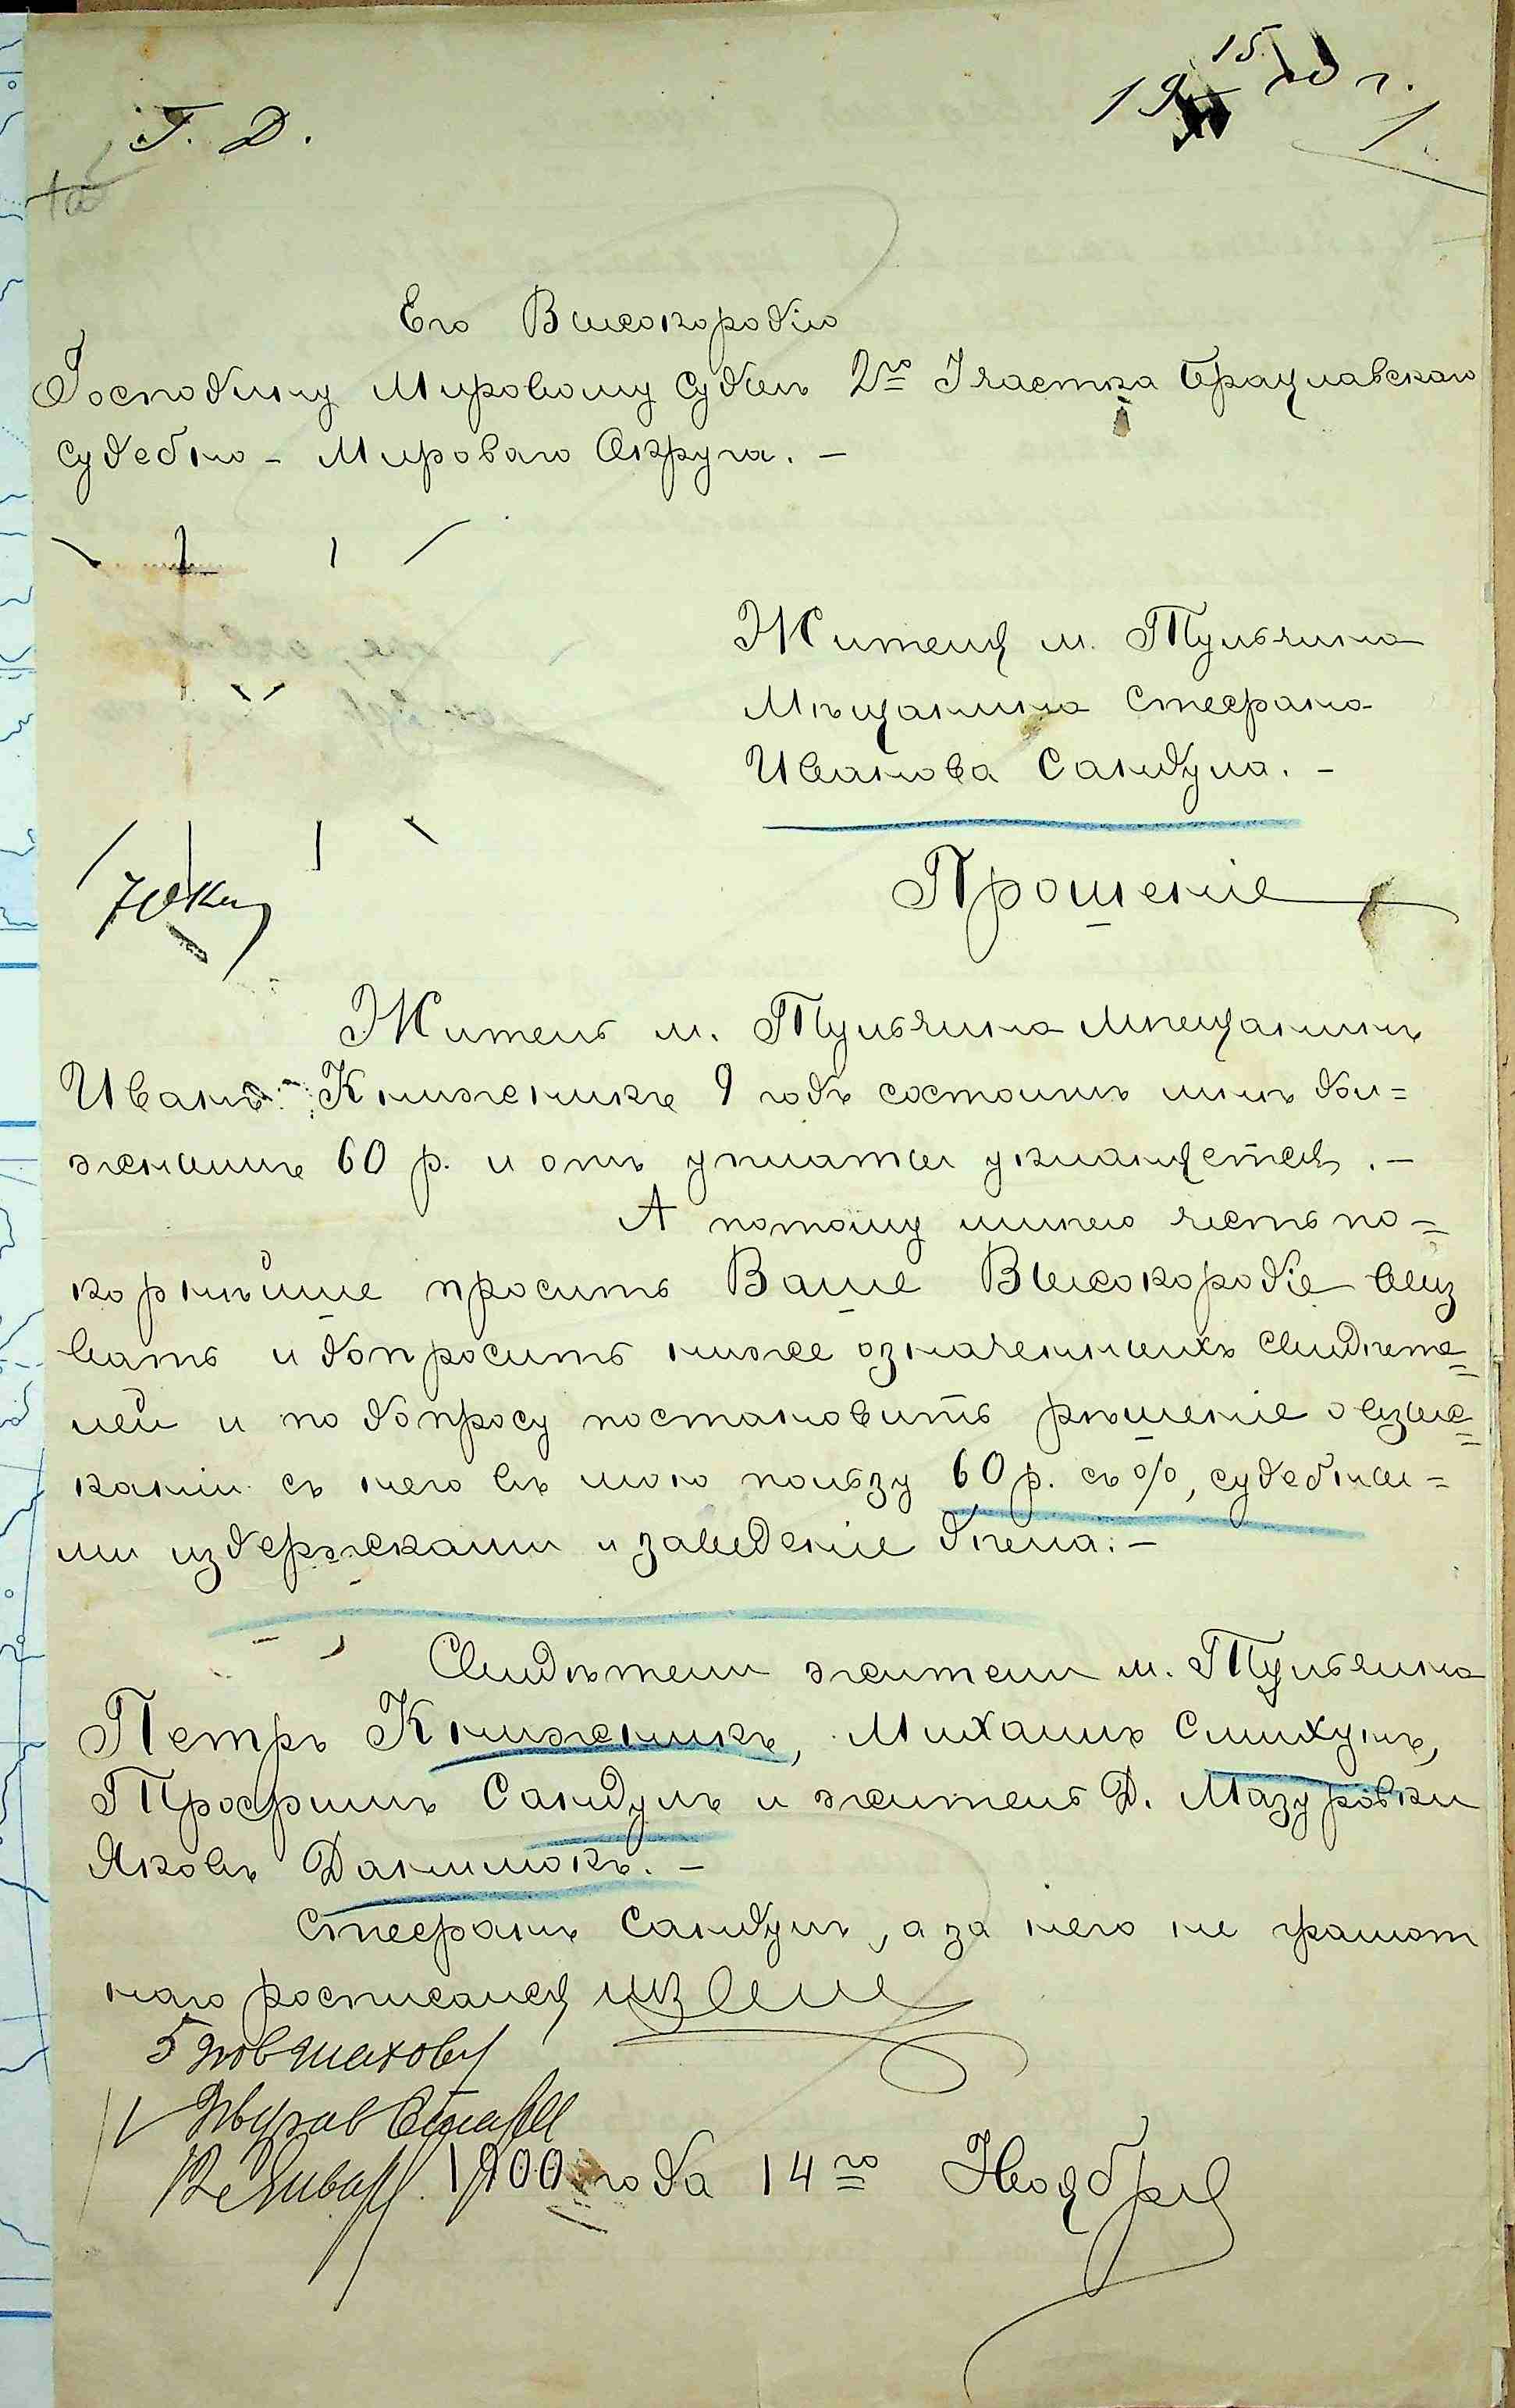 Г. Д.
19 15/XI 00 г.
1
Его Высокородію
Господину Мировому Судьѣ 2го Участка Брацлавскаго
Судебно - Мироваго Округа. -
Жителя м. Тульчина
Мѣщанина Стефана
Иванова Сандула. -
Прошеніе
70 коп
Житель м. Тульчина Мѣщанинъ
Иванъ Книженикъ 9 годъ состоитъ мнѣ дол=
женъ 60 р. и отъ уплаты уклоняется. -
А потому имѣю честь по=
корнѣйше просить Ваше Высокородіе выз
вать и допросить ниже означенныхъ свидѣте=
лей и по допросу постановить рѣшеніе о взыс=
каніи съ него въ мою пользу 60 р. съ %, судебны=
ми издержками и заведеніе дѣла. -
Свидѣтели жители м. Тульчина
Петръ Книженикъ, Михаилъ Слихунъ,
Трофимъ Сандулъ и житель д. Мазуровки
Яковъ Данилюкъ. -
Стефанъ Сандулъ, а за него не грамот
наго росписался
5
1900 года 14го Ноября